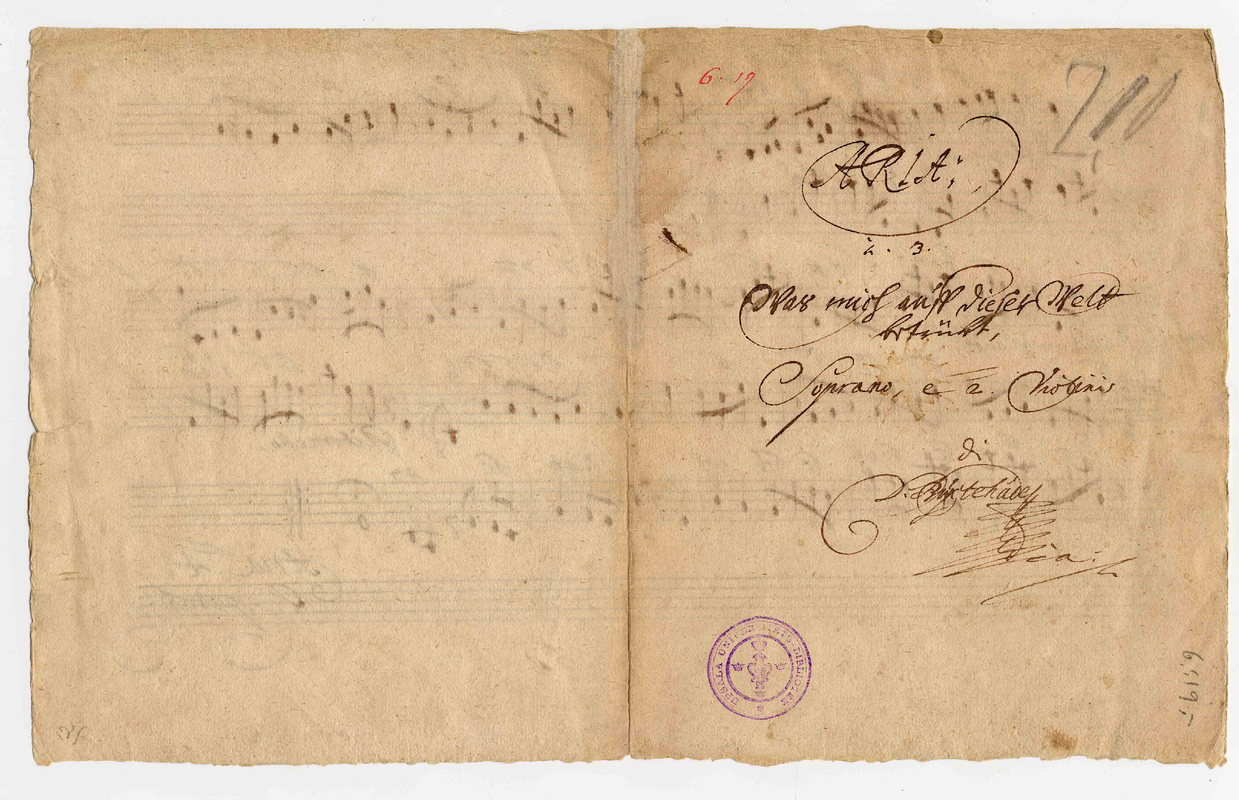 6. 19
710
ARIA;
à. 3.
Was mich auff dieser Welt
betrübt,
Soprano, e 2. Violini
di
D. Buxtehude
UPSALA UNIVERSITETS BIBLIOTEK
6:19.